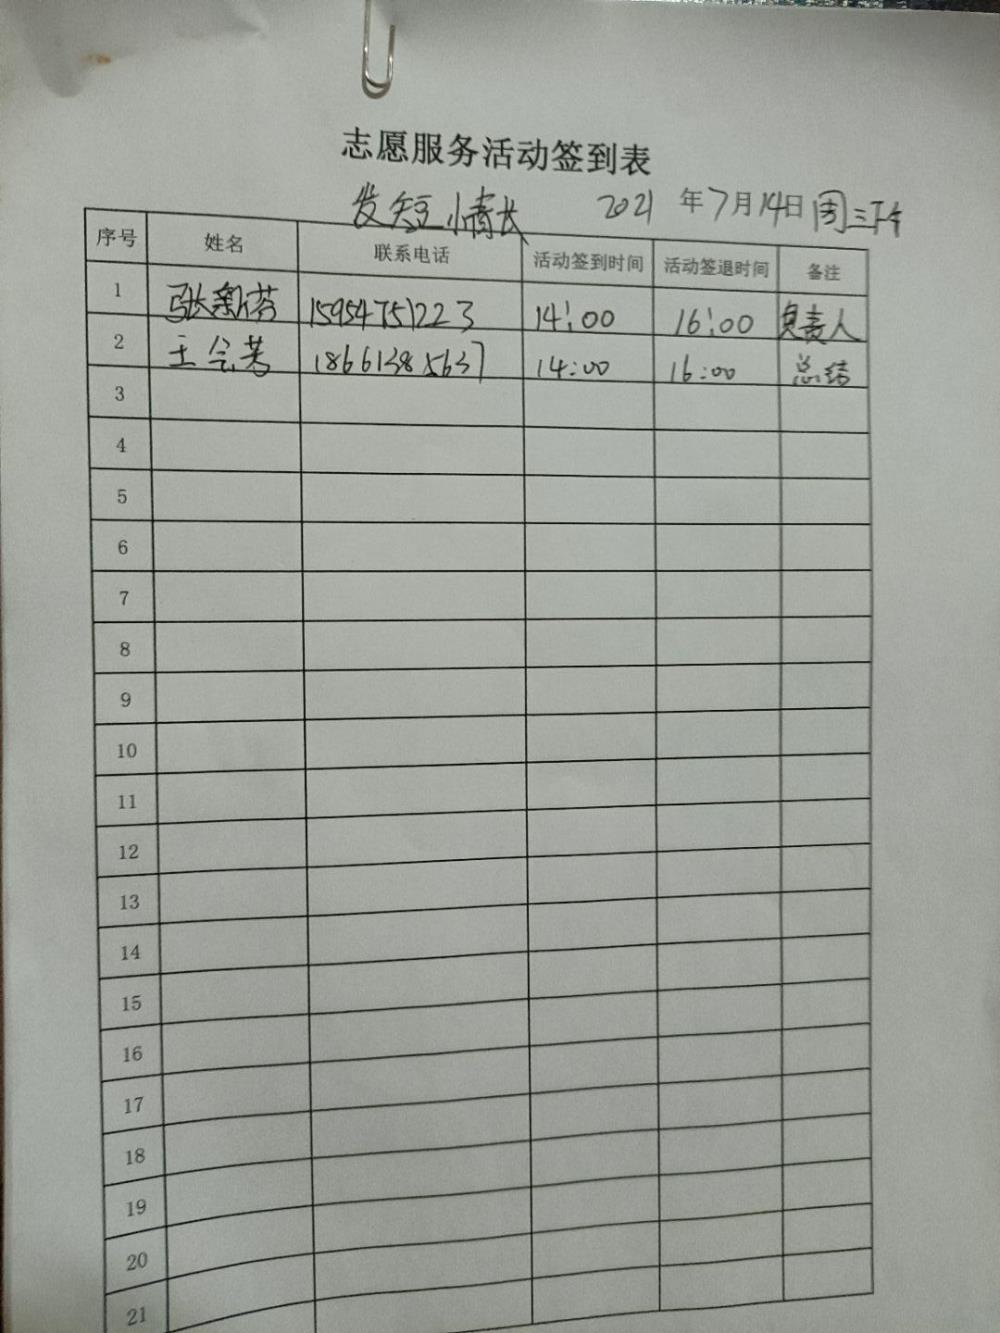 志愿服务活动签到表
发短情长 2021年7月14日周三下午
序号 姓名 联系电话 活动签到时间 活动签退时间 备注
1 张新芬 15954751223 14:00 16:00 负责人
2 王会芳 18661385637 14:00 16:00 总结
3
4
5
6
7
8
9
10
11
12
13
14
15
16
17
18
19
20
21